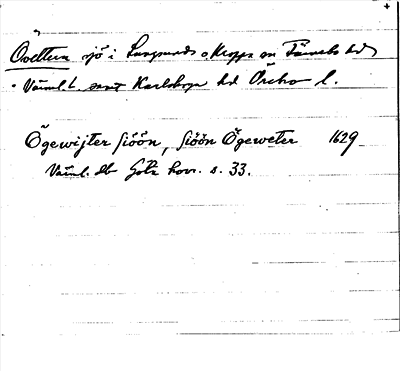 Övettern sjö i Lungsunds o. Kroppa sn Färnebo hd
Värml. l. samt Karlskoga hd Örebro l.
Ögewijter siöön, siöön Ögeweter 1629
Värml. db Göta hovr. s. 33.